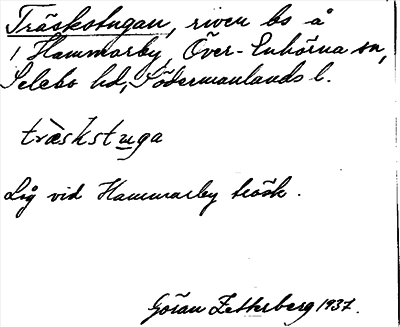 Träskstugan, riven bs å
1 Hammarby, Över-Enhörna sn,
Selebo hd, Södermanlands l.
træ̀skstu̲ga
Låg vid Hammarby träsk.
Göran Zetterberg 1937.